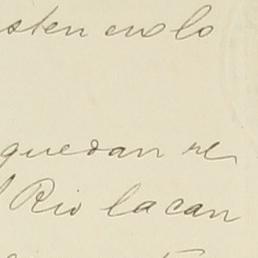 sten en lo
quedan re
Rio la can